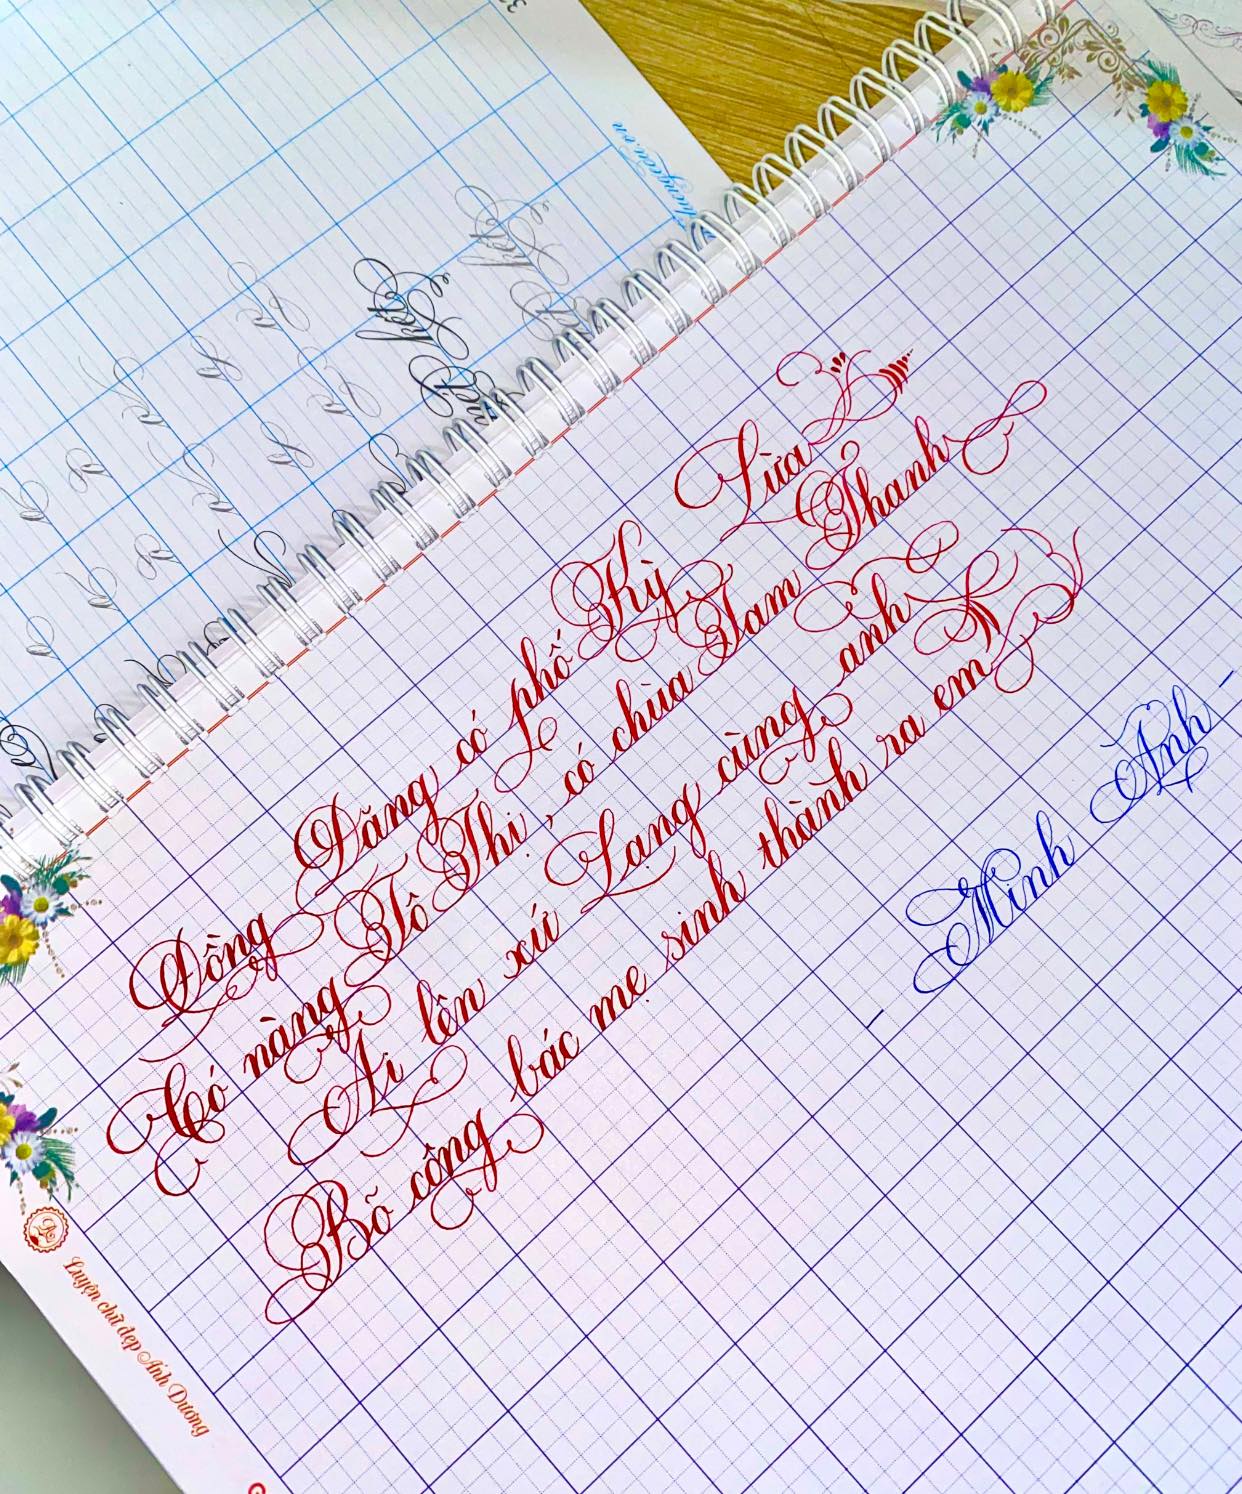 Đồng Đăng có phố Kỳ Lừa
Có nàng Tô Thị, có chùa Tam Thanh
Ai lên xứ Lạng cùng anh
Bõ công bác mẹ sinh thành ra em
- Minh Anh -
Luyện chữ đẹp Ánh Dương